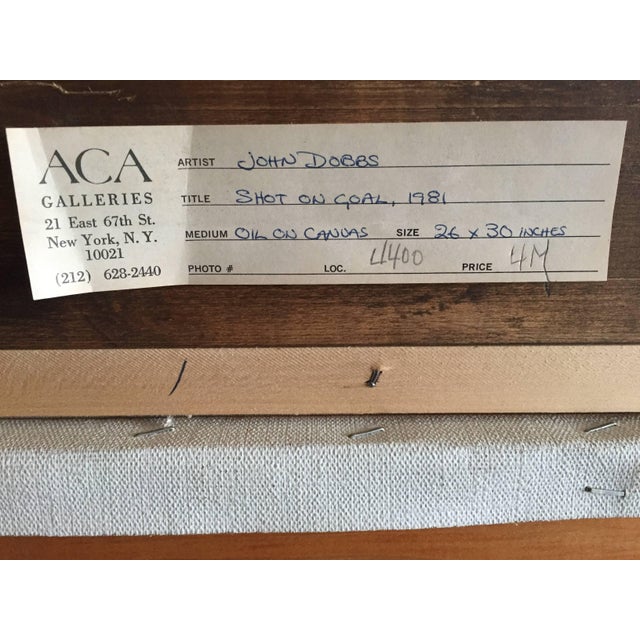 ACA
GALLERIES
21 East 67th St.
New York, N. Y.
10021
(212) 628-2440
ARTIST JOHN DOBBS
TITLE SHOT ON GOAL, 1981
MEDIUM OIL ON CANVAS SIZE 26 x 30 INCHES
PHOTO # LOC. 4400 PRICE 4M